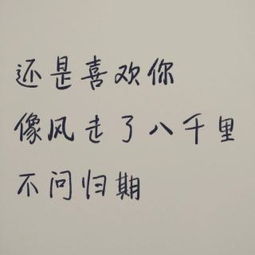 还是喜欢你
像风走了八千里
不问归期